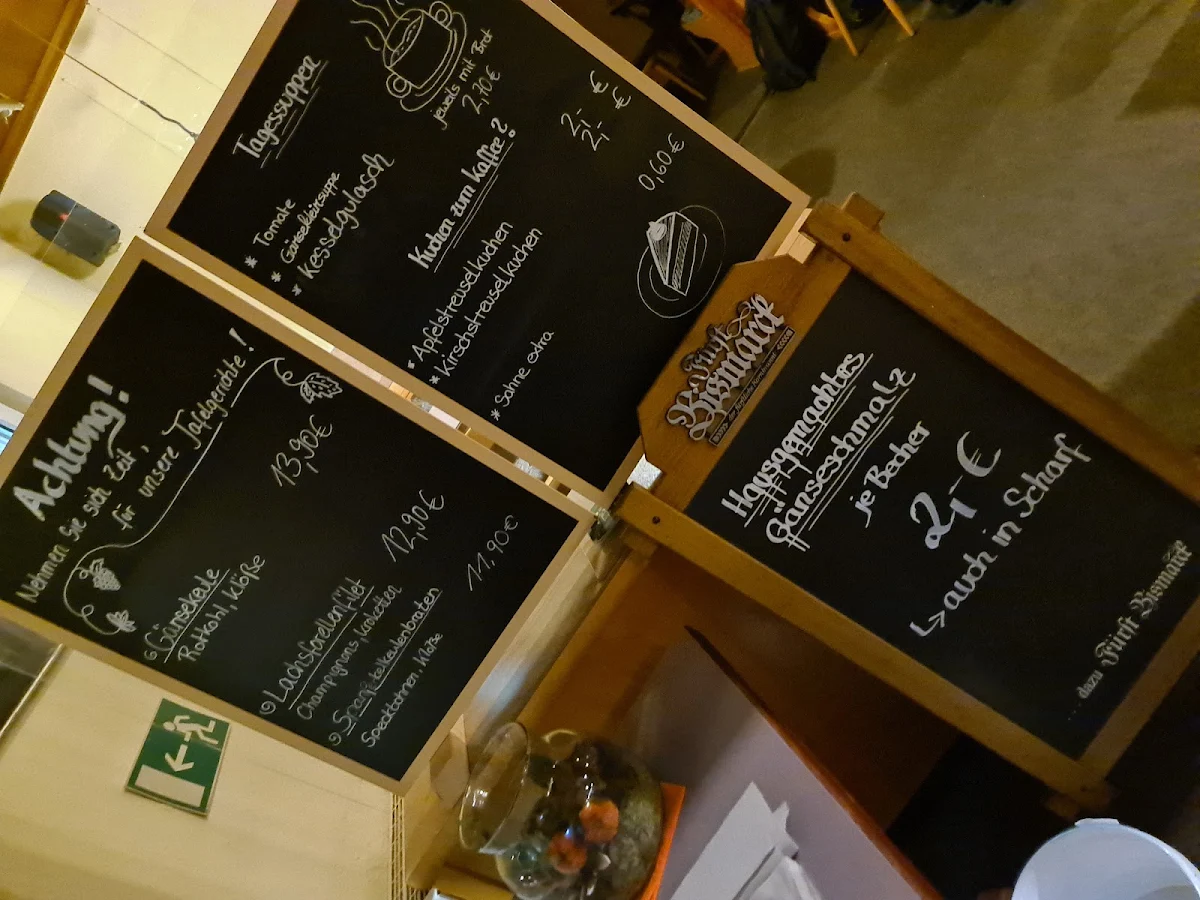 Tagessuppen
jeweils mit Brot
2,70€
* Tomate
* Gänsekleinsuppe
* Kesselgulasch
Kuchen zum Kaffee?
* Apfelstreuselkuchen 2,- €
* Kirschstreuselkuchen 2,- €
* Sahne extra 0,60€
Achtung!
Nehmen Sie sich Zeit,
für unsere Tafelgerichte!
Gänsekeule 13,90€
Rotkohl, Klöße
Lachsforellenfilet 12,90€
Champignons, Kroketten
11,90€
Speckbohnen, Klöße
Fürst
Bismarck
Hausgemachtes
Gänseschmalz
je Becher
2,- €
↳ auch in Scharf
... dazu Fürst Bismarck